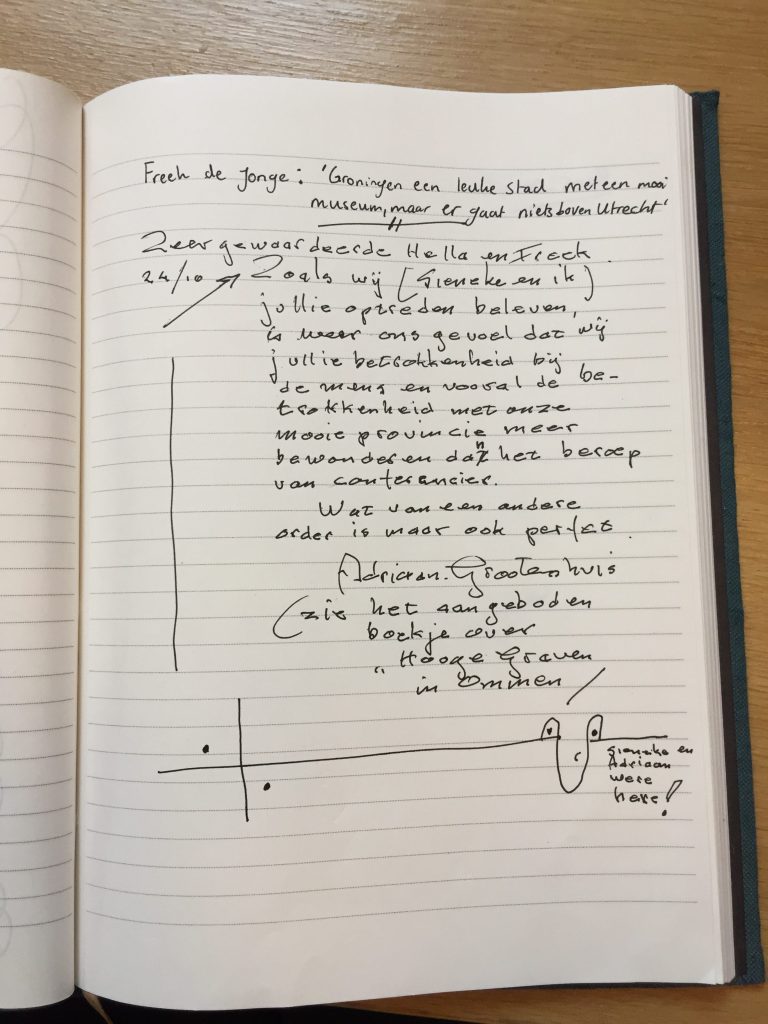 Freek de Jonge: 'Groningen een leuke stad met een mooi
museum, maar er gaat niets boven Utrecht'
Zeer gewaardeerde Hella en Freek.
24/10 Zoals wij (Sieneke en ik)
jullie optreden beleven,
is weer ons gevoel dat wij
jullie betrokkenheid bij
de mens en vooral de be-
trokkenheid met onze
mooie provincie meer
bewonderen dan het beroep
van conferancier.
Wat van een andere
order is maar ook perfekt.
Adriaan Grootenhuis
(zie het aangeboden
boekje over
"Hooge Graven
in Ommen /
Sieneke en
Adriaan
were
here!